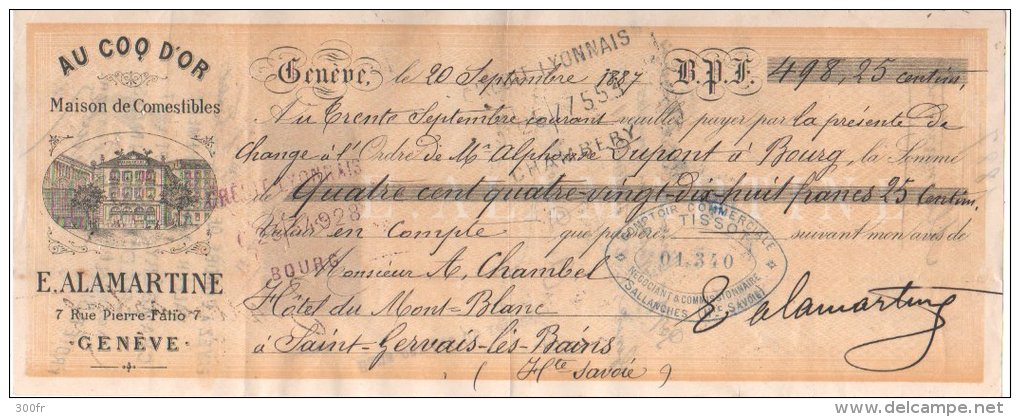 AU COQ D'OR
Maison de Comestibles
E. ALAMARTINE
7 Rue Pierre Fatio 7
GENÈVE
Genève, le 20 Septembre 1887 B.P.F. 498,25 centims
Au Trente Septembre courant veuillez payer par la présente de
Change à l'Ordre de Mr Alphonse Dupont à Bourg, la Somme
de Quatre cent quatre-vingt-dix huit francs 25 Centims
Valeur en Compte que passerez suivant mon avis de
Monsieur A. Chambel
Hôtel du Mont-Blanc
à Saint-Gervais-lès-Bains
(Hte Savoie)
E. ALAMARTINE
E Alamartine
CRÉDIT LYONNAIS
77553
CHAMBERY
CRÉDIT LYONNAIS
4928
BOURG
COMPTOIR COMMERCIALE
TISSOT
01.340
NEGOCIANT & COMMISSIONNAIRE
SALLANCHES (Hte SAVOIE)
300fr
delcampe.net